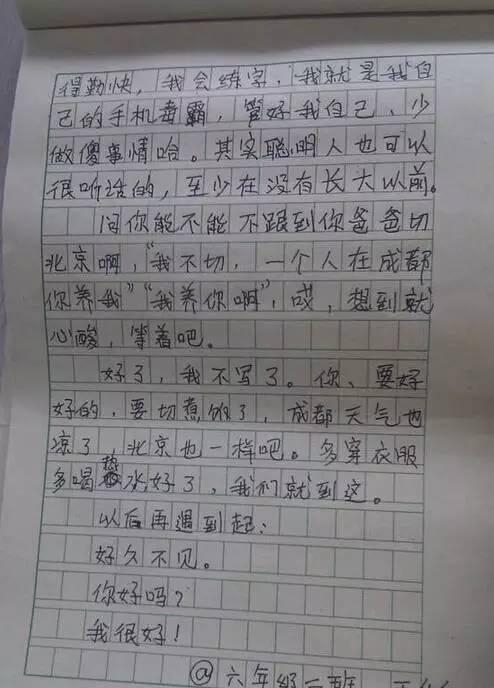 得勤快，我会练字，我就是我自
己的手机毒霸，管好我自己、少
做傻事情哈。其实聪明人也可以
很听话的，至少在没有长大以前。
问你能不能不跟到你爸爸切
北京啊，“我不切，一个人在成都
你养我”“我养你啊”，哎，想到就
心酸，等着吧。
好了，我不写了。你、要好
好的，要切煮饭了，成都天气也
凉了，北京也一样吧。多穿衣服
多喝热水好了，我们就到这。
以后再遇到起：
好久不见。
你好吗？
我很好！
@六年级一班